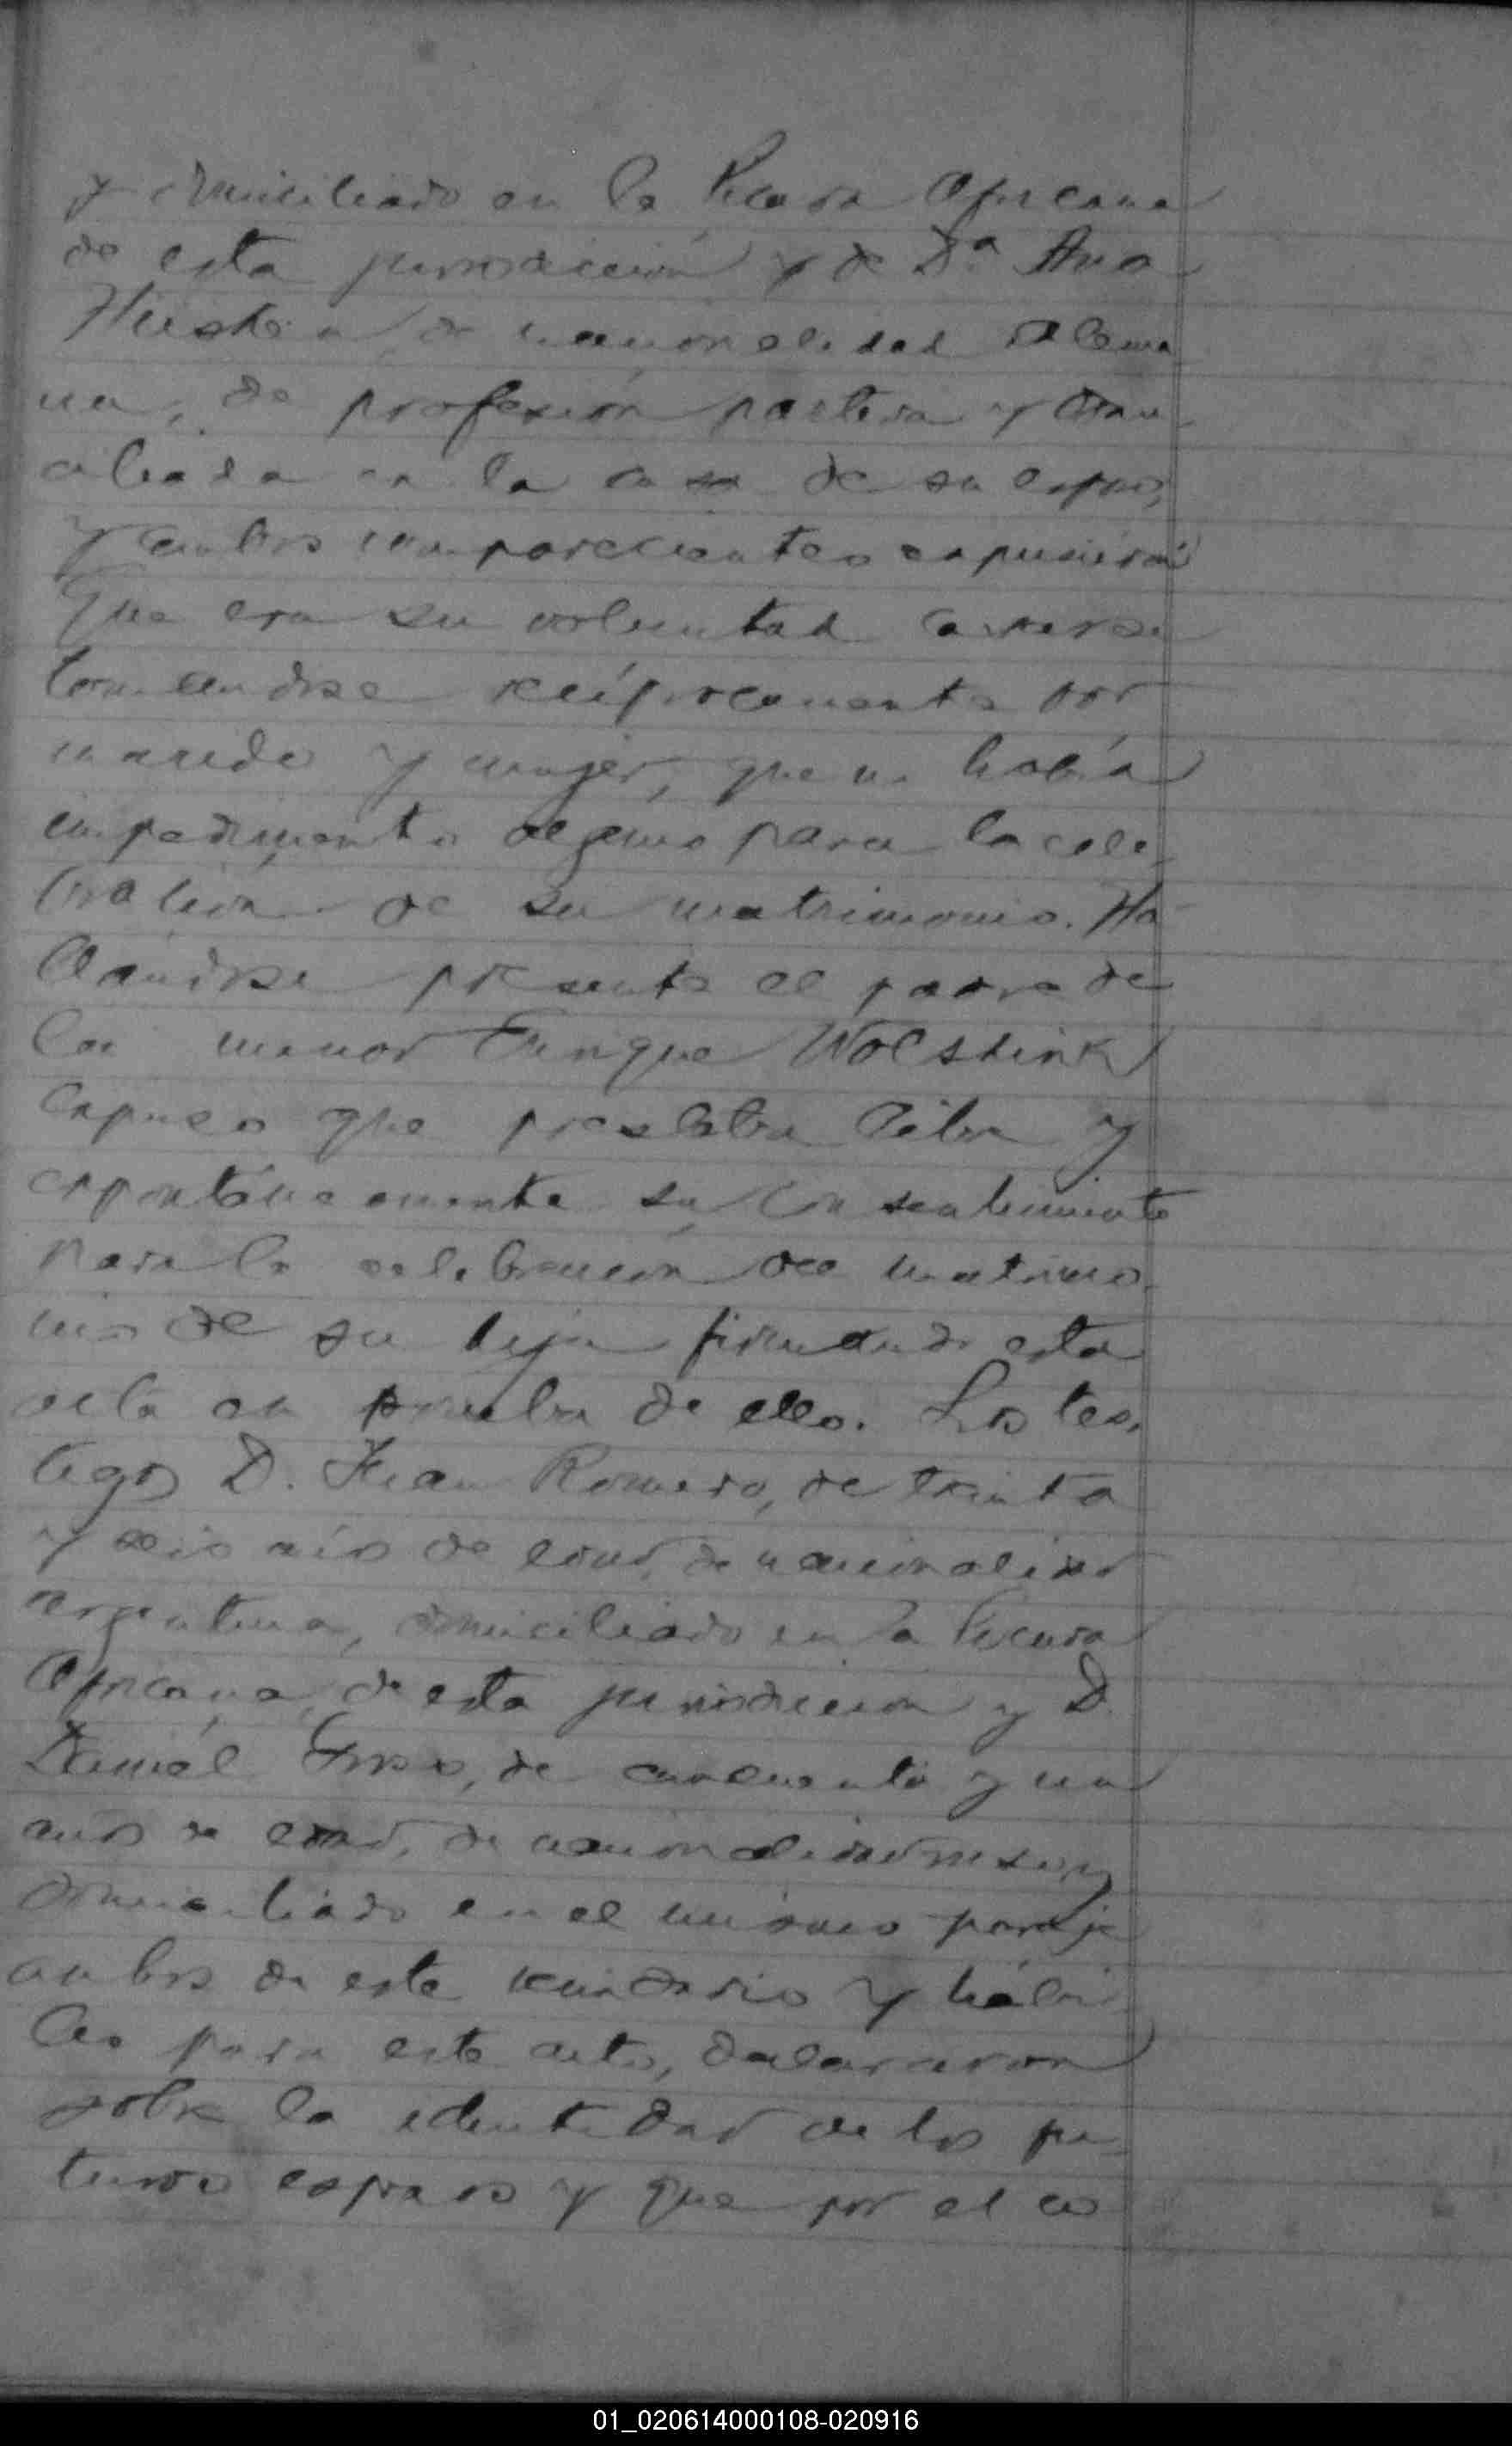 y domiciliado en la Picada Africana
de esta jurisdicción y de Dª Ana
de nacionalidad alema
na, de profesión partera y domi
ciliada en la casa de su esposo,
y ambos comparecientes expusieron
Que era su voluntad casarse
tomándose recíprocamente por
marido y mujer, que no había
impedimento alguno para la cele
bración de su matrimonio. Ha
llándose presente el padre de
la menor Enrique Wolstink
expuso que prestaba libre y
espontáneamente su consentimiento
para la celebración del matrimo
nio de su hija firmando esta
acta en prueba de ello. Los tes
tigos D. Juan Romero, de treinta
y seis años de edad, de nacionalidad
argentina, domiciliado en la Picada
Africana, de esta jurisdicción y D.
de cincuenta y un
años de edad, de nacionalidad rusa y
domiciliado en el mismo paraje
ambos de este vecindario y hábi
les para este acto, declararon
sobre la identidad de los fu
turos esposos y que por el co
01_020614000108-020916